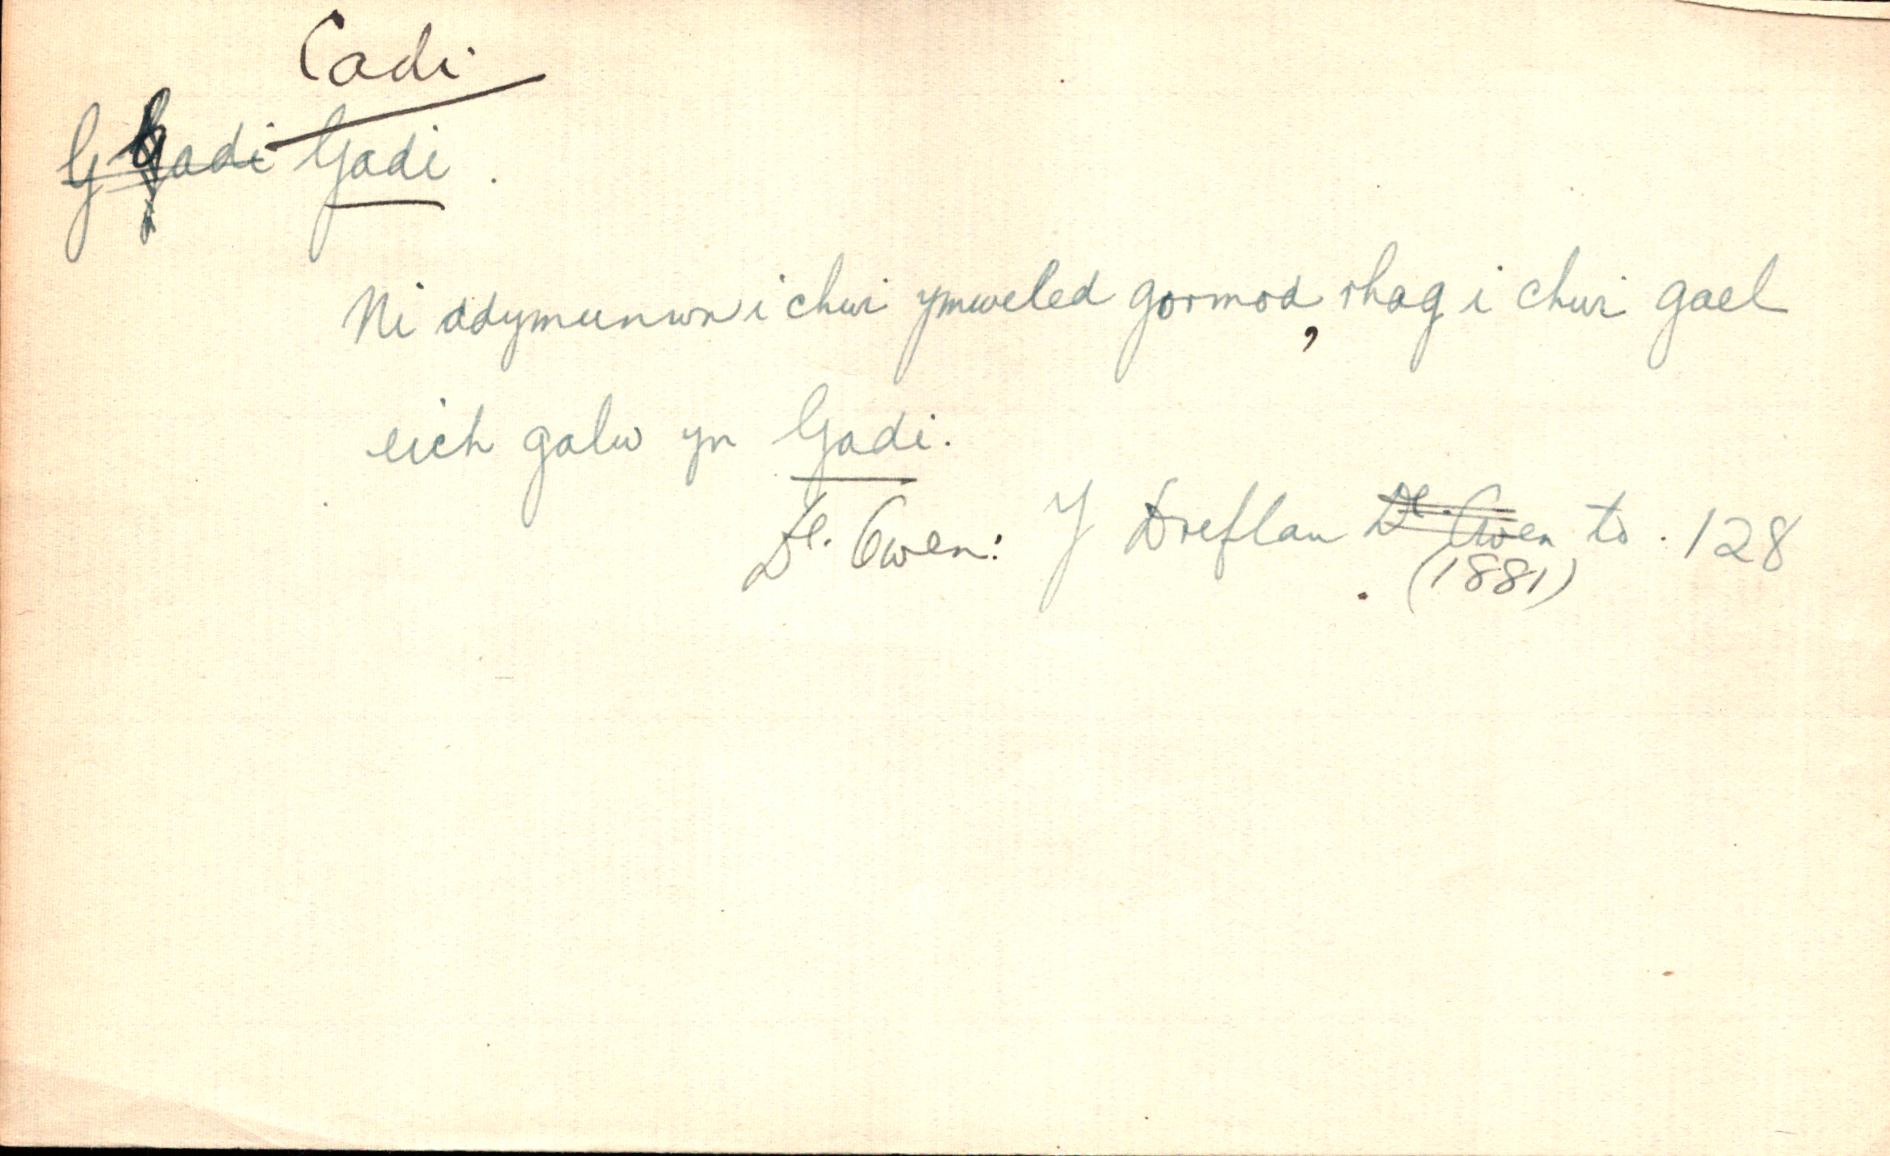 Cadi
G Gadi Gadi.
Ni ddymunwn i chwi ymweled gormod, rhag i chwi gael
eich galw yn Gadi.
Dl. Owen: Y Dreflan Dl. Owen td. 128
(1881)